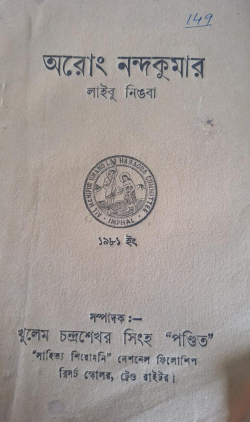 149
অরোং নন্দকুমার
লাইবু নিঙবা
AL MANIPUR GRAND HARAOBA COMMITTEE
IMPHAL
১৯৮১ ইং
সম্পাদক :—
খুলেম চন্দ্রশেখর সিংহ "পণ্ডিত"
"সাহিত্য শিরোমনি" নেশনেল ফিলোশিপ
রিসর্চ স্কোলর, ট্রেণ্ড রাইটর।